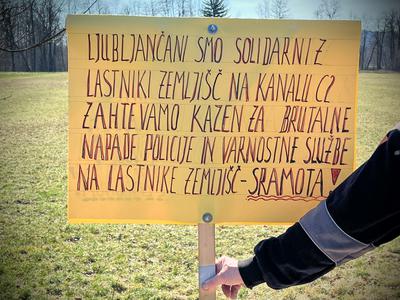 LJUBLJANČANI SMO SOLIDARNI Z
LASTNIKI ZEMLJIŠČ NA KANALU C0
ZAHTEVAMO KAZEN ZA BRUTALNE
NAPADE POLICIJE IN VARNOSTNE SLUŽBE
NA LASTNIKE ZEMLJIŠČ-SRAMOTA!